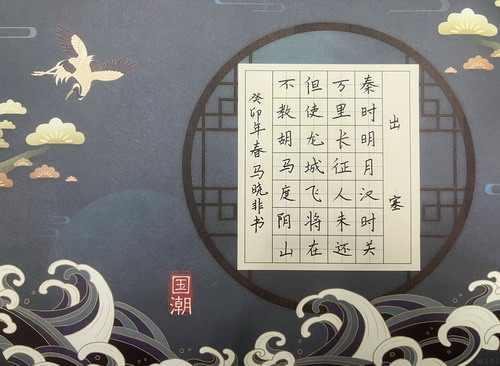 出塞
秦时明月汉时关
万里长征人未还
但使龙城飞将在
不教胡马度阴山
癸卯年春马晓非书
国潮